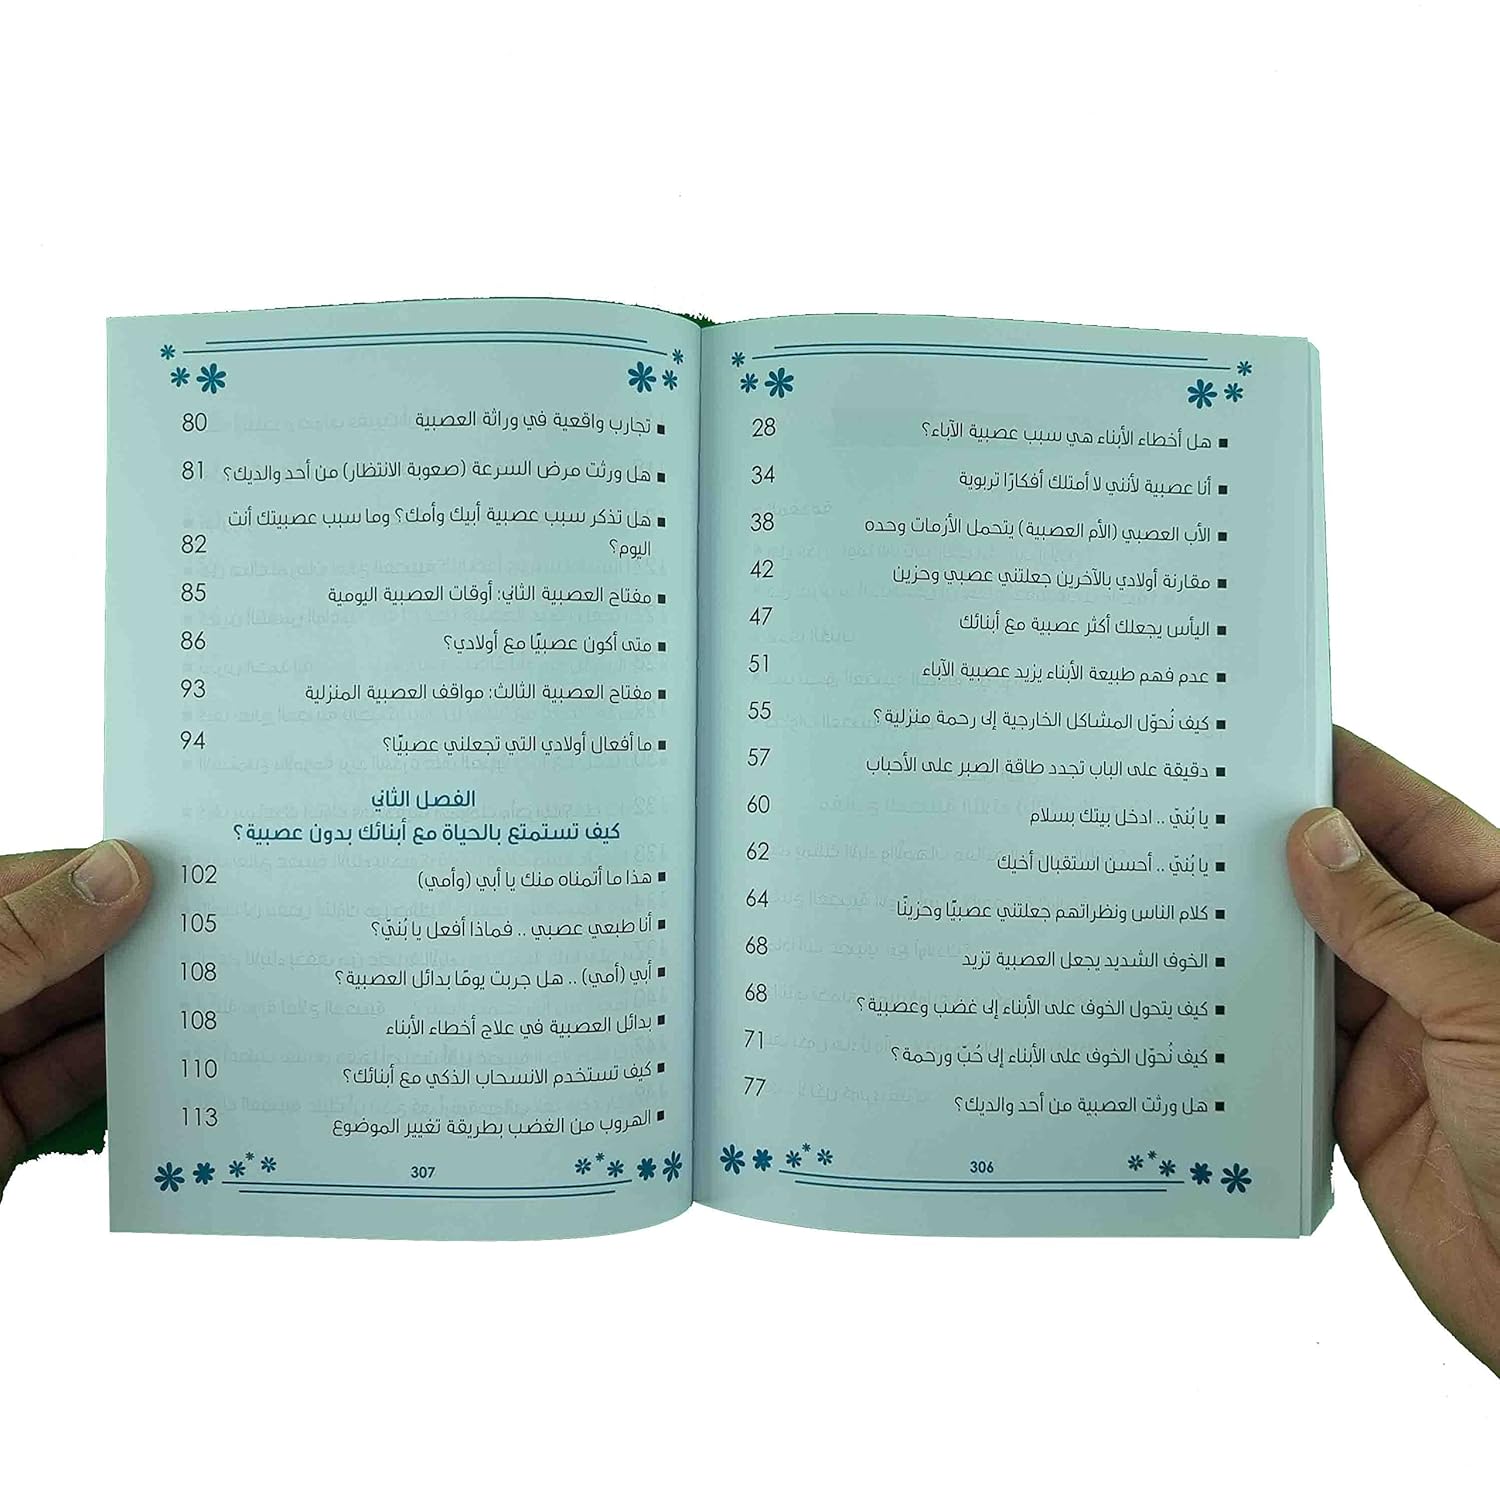 ■ هل أخطاء الأبناء هي سبب عصبية الآباء؟ 28
■ أنا عصبية لأنني لا أمتلك أفكارًا تربوية 34
■ الأب العصبي (الأم العصبية) يتحمل الأزمات وحده 38
■ مقارنة أولادي بالآخرين جعلتني عصبي وحزين 42
■ اليأس يجعلك أكثر عصبية مع أبنائك 47
■ عدم فهم طبيعة الأبناء يزيد عصبية الآباء 51
■ كيف نُحوّل المشاكل الخارجية إلى رحمة منزلية؟ 55
■ دقيقة على الباب تجدد طاقة الصبر على الأحباب 57
■ يا بُنيّ .. ادخل بيتك بسلام 60
■ يا بُنيّ .. أحسن استقبال أخيك 62
■ كلام الناس ونظراتهم جعلتني عصبيًا وحزينًا 64
■ الخوف الشديد يجعل العصبية تزيد 68
■ كيف يتحول الخوف على الأبناء إلى غضب وعصبية؟ 68
■ كيف نُحوّل الخوف على الأبناء إلى حُبّ ورحمة؟ 71
■ هل ورثت العصبية من أحد والديك؟ 77
306
■ تجارب واقعية في وراثة العصبية 80
■ هل ورثت مرض السرعة (صعوبة الانتظار) من أحد والديك؟ 81
■ هل تذكر سبب عصبية أبيك وأمك؟ وما سبب عصبيتك أنت
اليوم؟ 82
■ مفتاح العصبية الثاني: أوقات العصبية اليومية 85
■ متى أكون عصبيًا مع أولادي؟ 86
■ مفتاح العصبية الثالث: مواقف العصبية المنزلية 93
■ ما أفعال أولادي التي تجعلني عصبيًا؟ 94
الفصل الثاني
كيف تستمتع بالحياة مع أبنائك بدون عصبية؟
■ هذا ما أتمناه منك يا أبي (وأمي) 102
■ أنا طبعي عصبي .. فماذا أفعل يا بُنيّ؟ 105
■ أبي (أمي) .. هل جربت يومًا بدائل العصبية؟ 108
■ بدائل العصبية في علاج أخطاء الأبناء 108
■ كيف تستخدم الانسحاب الذكي مع أبنائك؟ 110
■ الهروب من الغضب بطريقة تغيير الموضوع 113
307